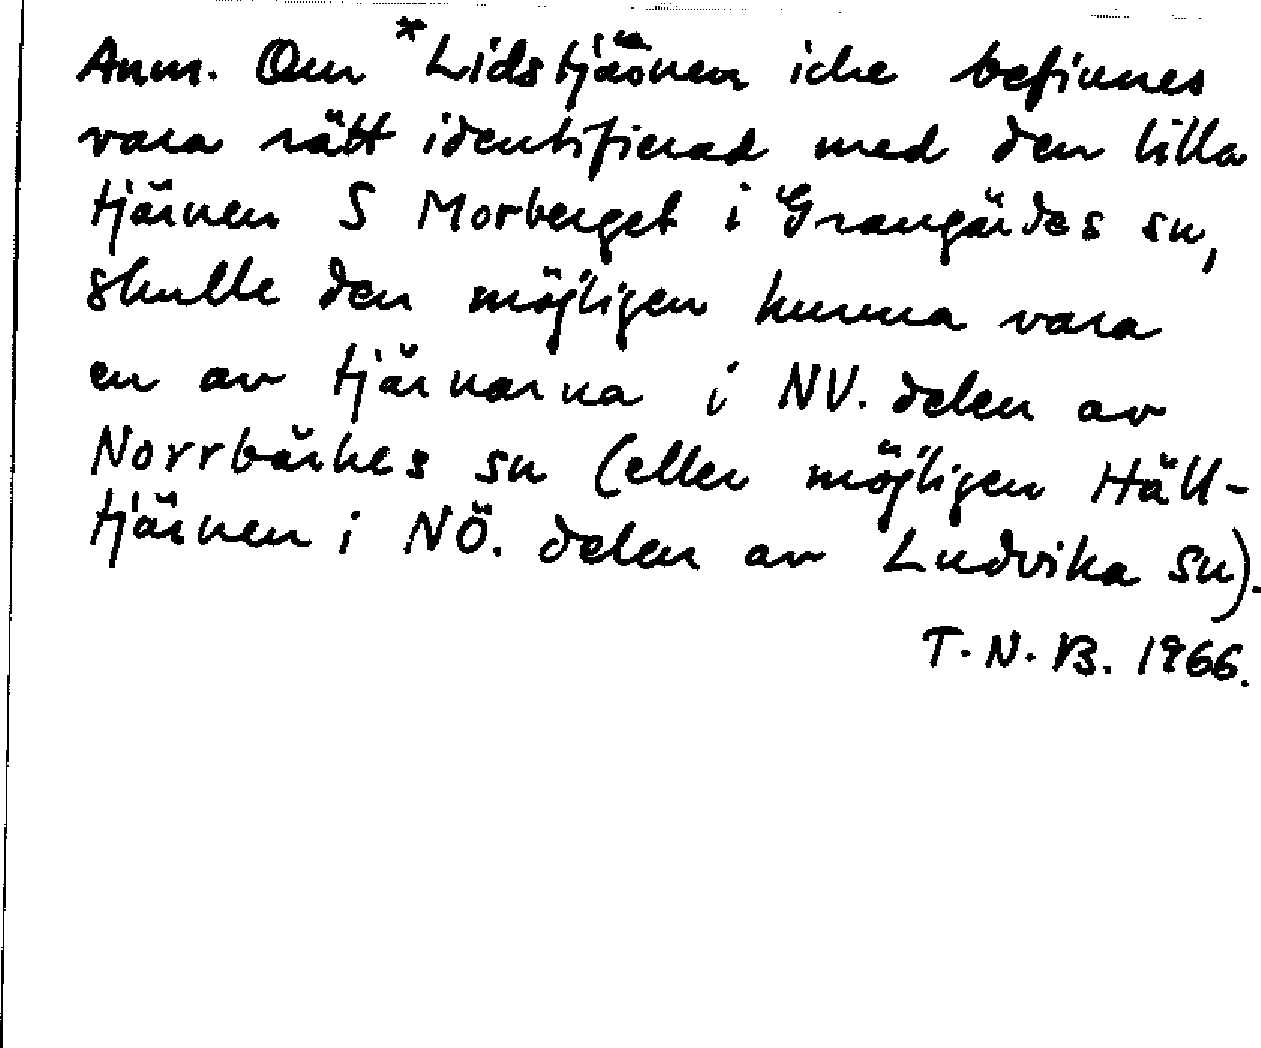 Anm. Om *Lidstjärnen icke befinnes
vara rätt identifierad med den lilla
tjärnen S Morberget i Grangärdes sn,
skulle den möjligen kunna vara
en av tjärnarna i NV. delen av
Norrbärkes sn (eller möjligen Häll-
tjärnen i NÖ. delen av Ludvika sn).
T. N. B. 1966.